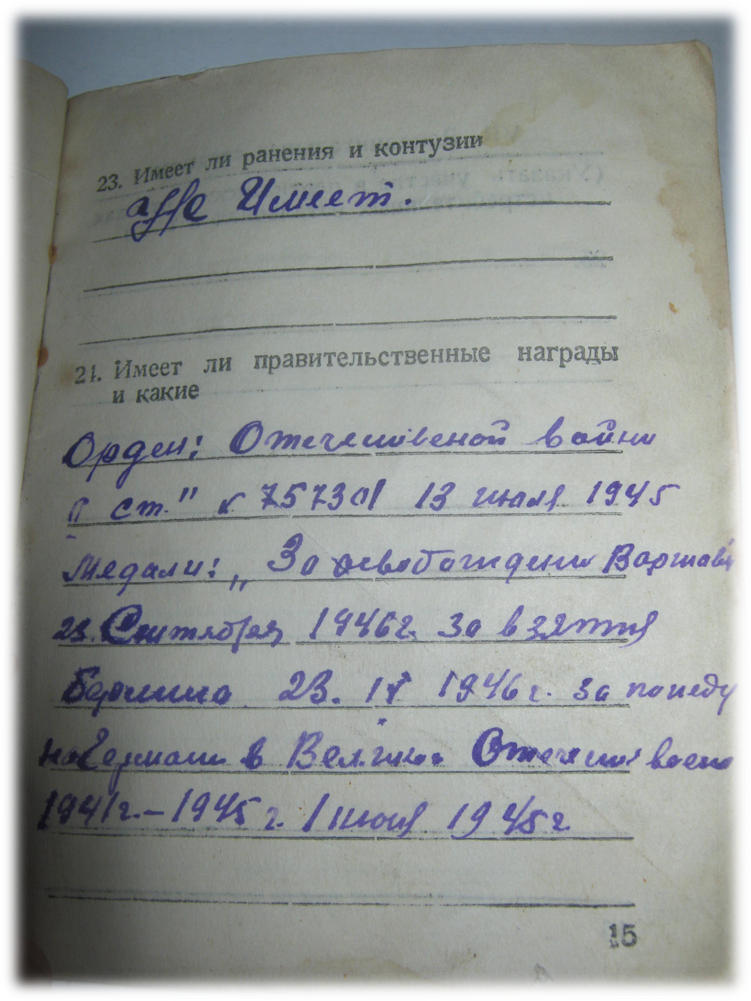 23. Имеет ли ранения и контузии
Не Имеет.
24. Имеет ли правительственные награды
и какие
Орден: Отечественой войны
II ст." к 757301 13 июля 1945
Медали: „ За освобождение Варшавы
23. Сентября 1946 г. За взятия
Берлина 23. IV 1946 г. за победу
на Германи в Велик. Отечест воено
1941 г. – 1945 г. 1 июля 1945 г.
15